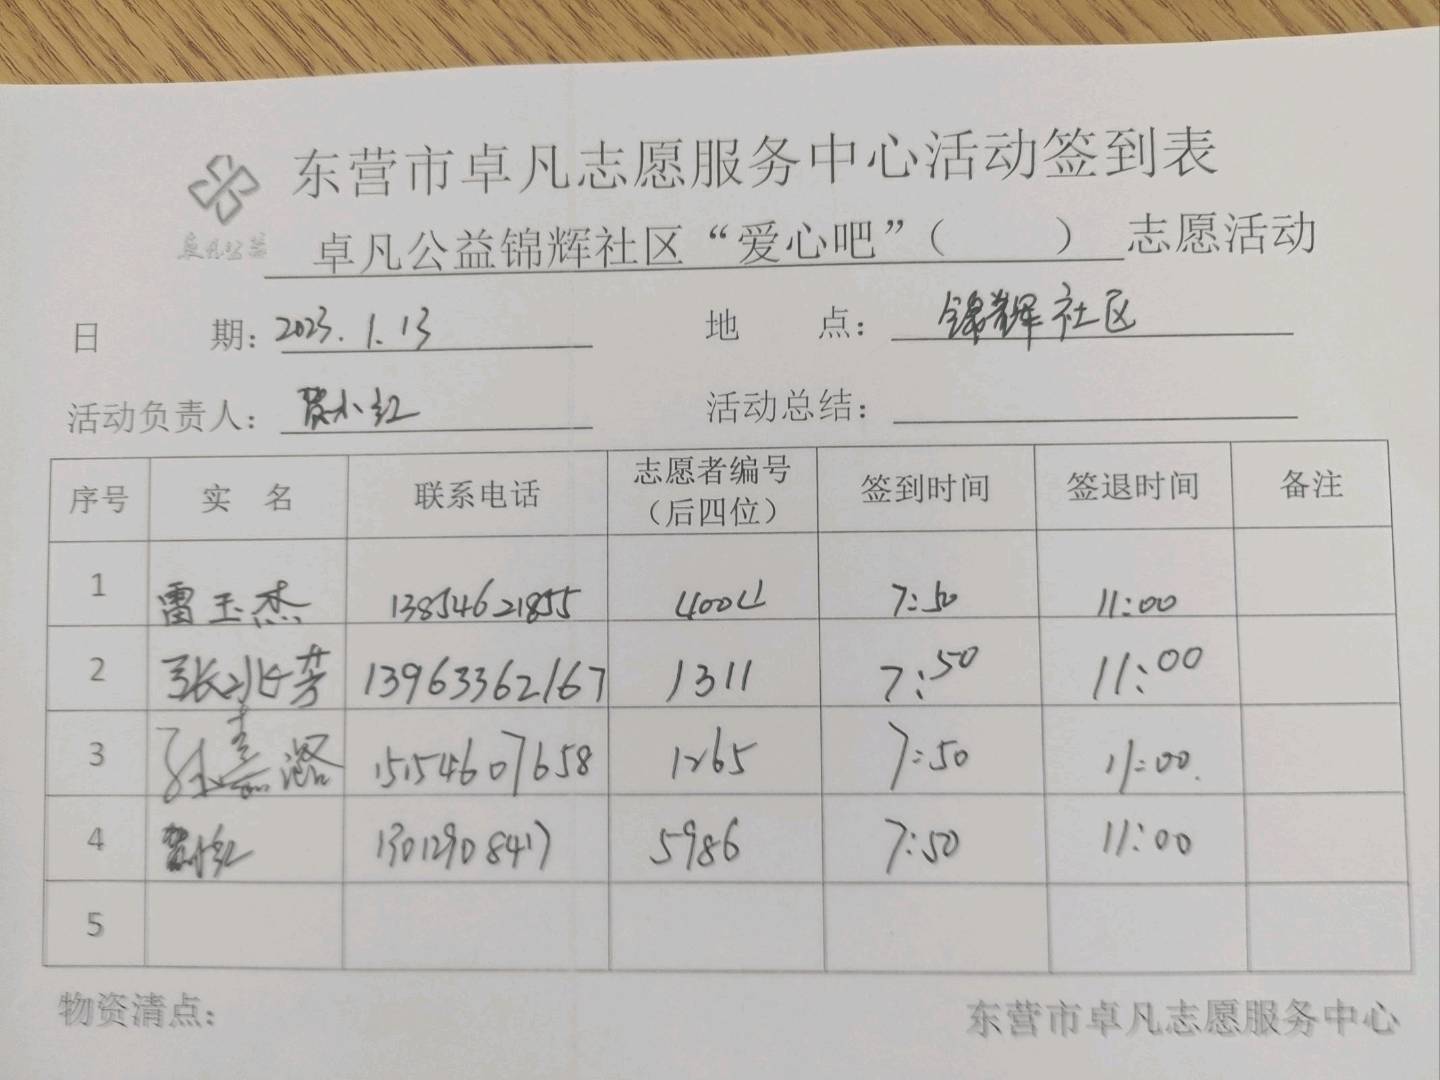 东营市卓凡志愿服务中心活动签到表
卓凡公益
卓凡公益锦辉社区“爱心吧”（ ）志愿活动
日 期：2023.1.13 地 点：锦辉社区
活动负责人：贺小红 活动总结：
序号 实 名 联系电话 志愿者编号（后四位） 签到时间 签退时间 备注
1 雷玉杰 13854621855 4004 7:50 11:00
2 张冰芳 13963362167 1311 7:50 11:00
3 15154607658 1265 7:50 11:00
4 贺小红 13012908417 5986 7:50 11:00
5
物资清点： 东营市卓凡志愿服务中心